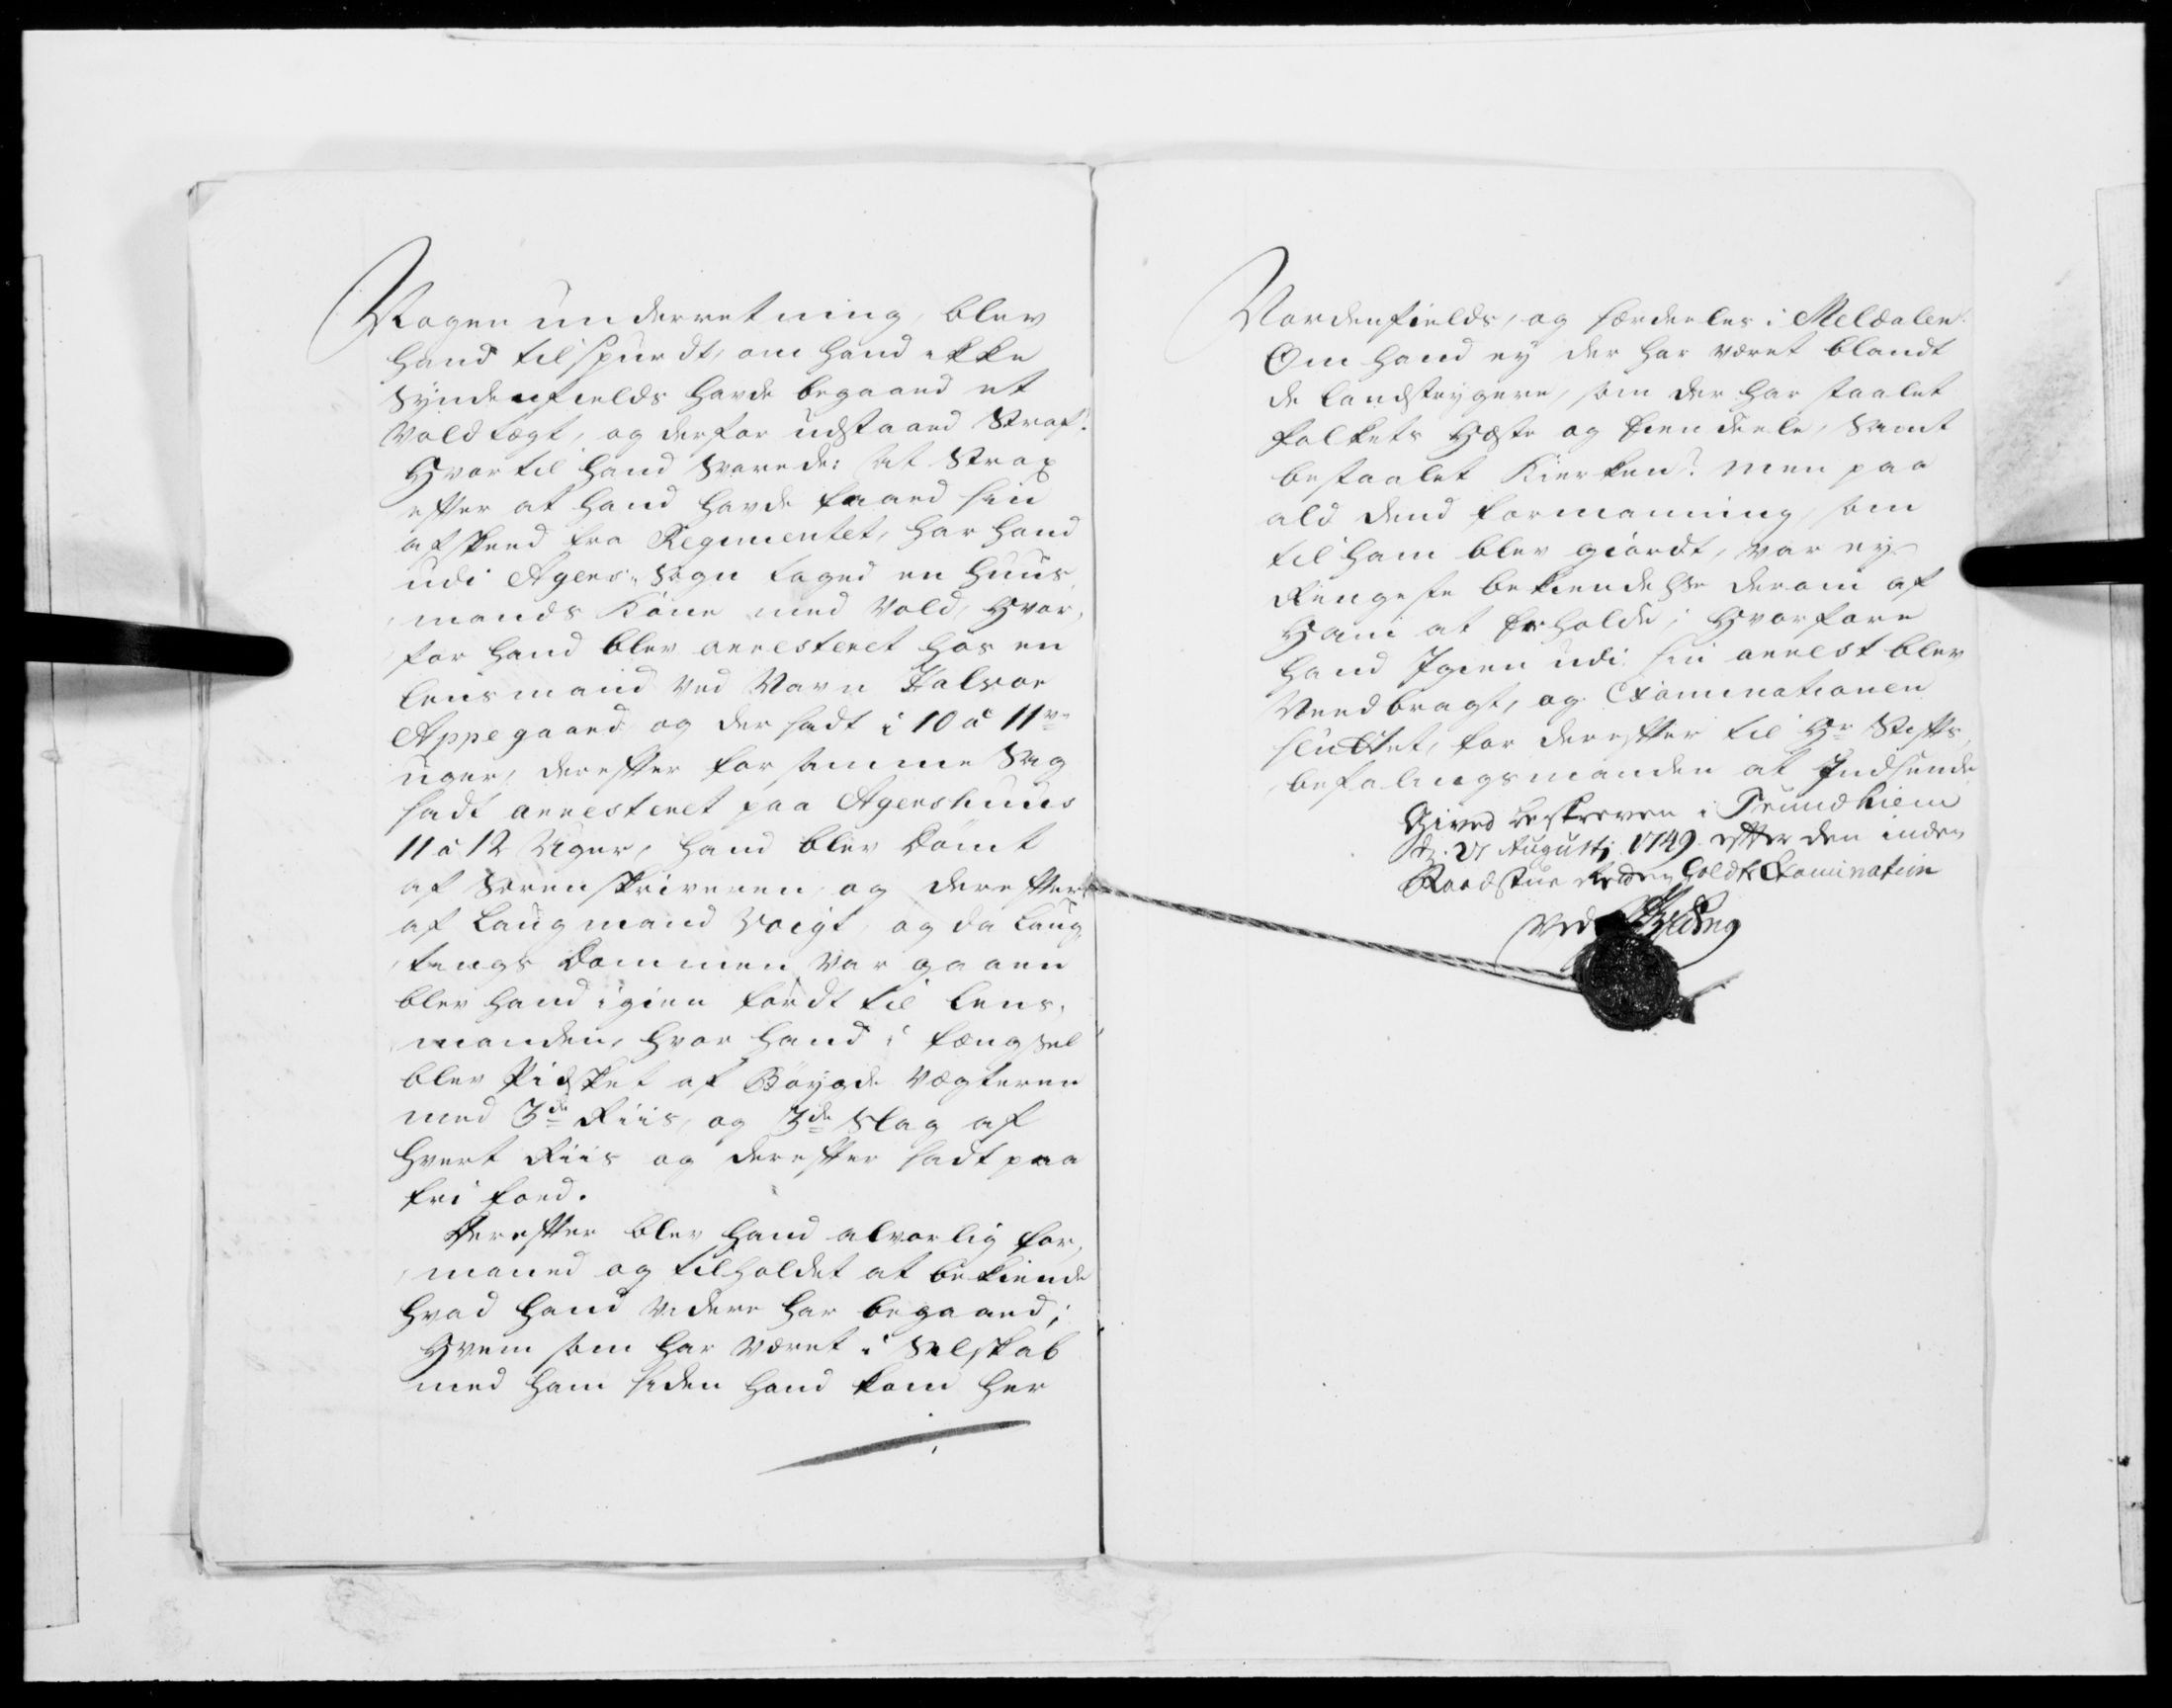 Nogen underretning, blev
hand tilspurdt, om hand ikke
Syndenfields havde begaaed et
Voldtægt, og derfor udstaaed Straf?
Hvortil hand svarede: at Strax
efter at hand havde faaed sin
afskeed fra Regimentet, har hand
udi Agers Sogn taged en Huus
mands Kone med Vold, Hvor,
for hand blev arresteret hos en
lensmand ved Navn Halvor
Appegaard og der sadt i 10 à 11ve
uger, derefter for samme Sag
sadt arresteret paa Agershuus
11 à 12 Uger, hand blev Dömt
af Sorenskriveren og derefter
af Laugmand Voigt, og da Laug
tings Dommen var gaaen
blev hand igien fördt til lens,
manden, hvor hand i fængsel
blev Pidsket af Böygde Vægteren
med 3de Riis, og 3de Slag af
hvert Riis og derefter sadt paa
fri foed.
Derefter blev hand alvorlig for,
maned og tilholdet at bekiende
hvad hand videre har begaaed;
Hvem som har været i Selskab
med ham siden hand kom her
Nordenfields, og særdeeles i Meldalen.
Om hand ey der har været blandt
de landstrygere, som der har staalet
folkets Heste og Eiendeele, samt
bestaalet Kierken? men paa
ald dend formanning, som
til ham blev giordt, var ey
Ringeste bekiendelsse derom af
Ham at Erholde; Hvorfore
hand Igien udi sin arrest blev
Needbragt, og Examinationen
sluttet, for derefter til Hr Stifts
befalingsmanden at Indsende
Gived beskreven i Trundhiem
d. 21 Augusti 1749 efter den inden
Raadstue Retten holdte Examination
Ved